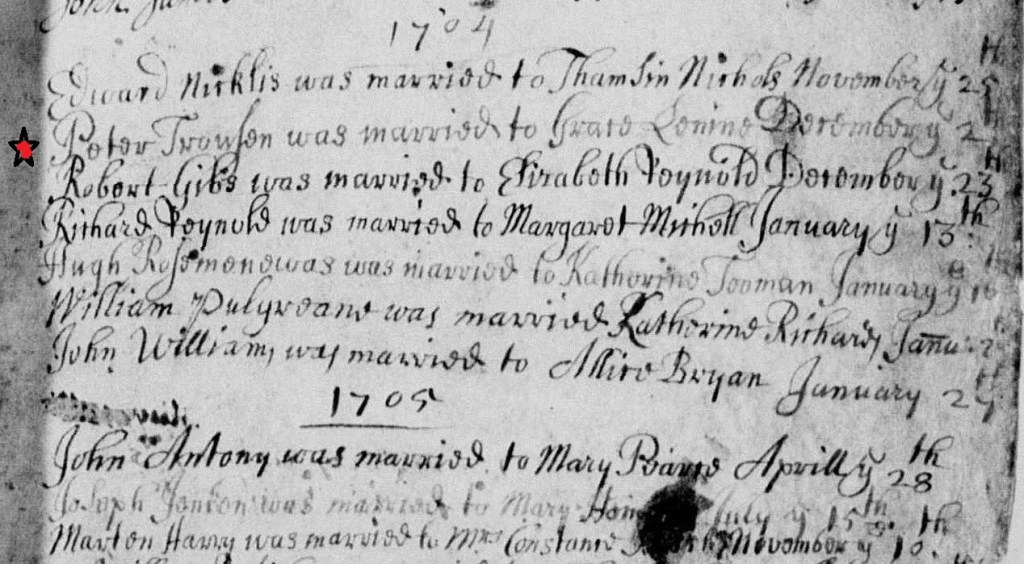 John
1704
Edward Nicklis was married to Thamsin Nichols November y 25th
Peter Trowsen was married to Grace Lenine December y 2
Robert Gibs was married to Elizabeth Reynold December y 23th
Richard Reynold was married to Margaret Michell January y 13th
Hugh Rosemenewas was married to Katherine Tooman January y 16
William Pulgreane was married Katherine Richards Janu:
John Williams was married to Allice Bryan January 27th
1705
John Antony was married to Mary Pearce Aprill y 28th
Joseph Jenken was married to Mary July y 15th
Marten Harry was married to Mrs Constance November y 10th